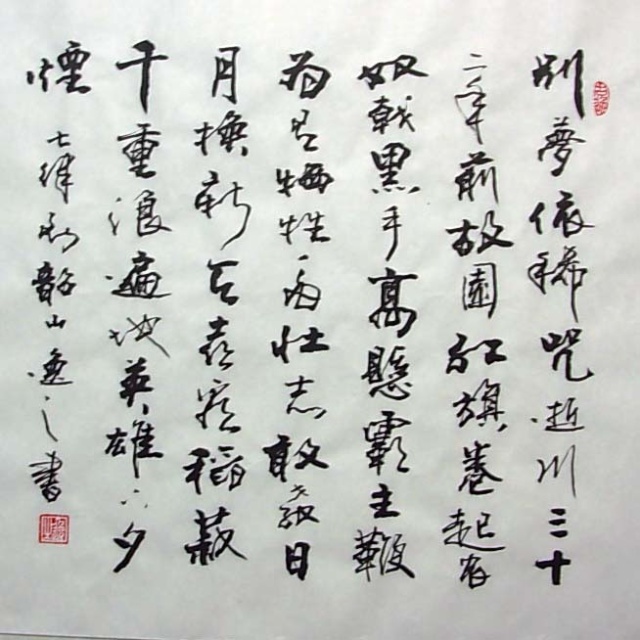 别夢依稀咒逝川三十
二年前故園红旗卷起农
奴戟黑手高懸霸主鞭
为有牺牲多壮志敢教日
月换新天喜看稻菽
千重浪遍地英雄下夕
煙 七律到韶山逸之書